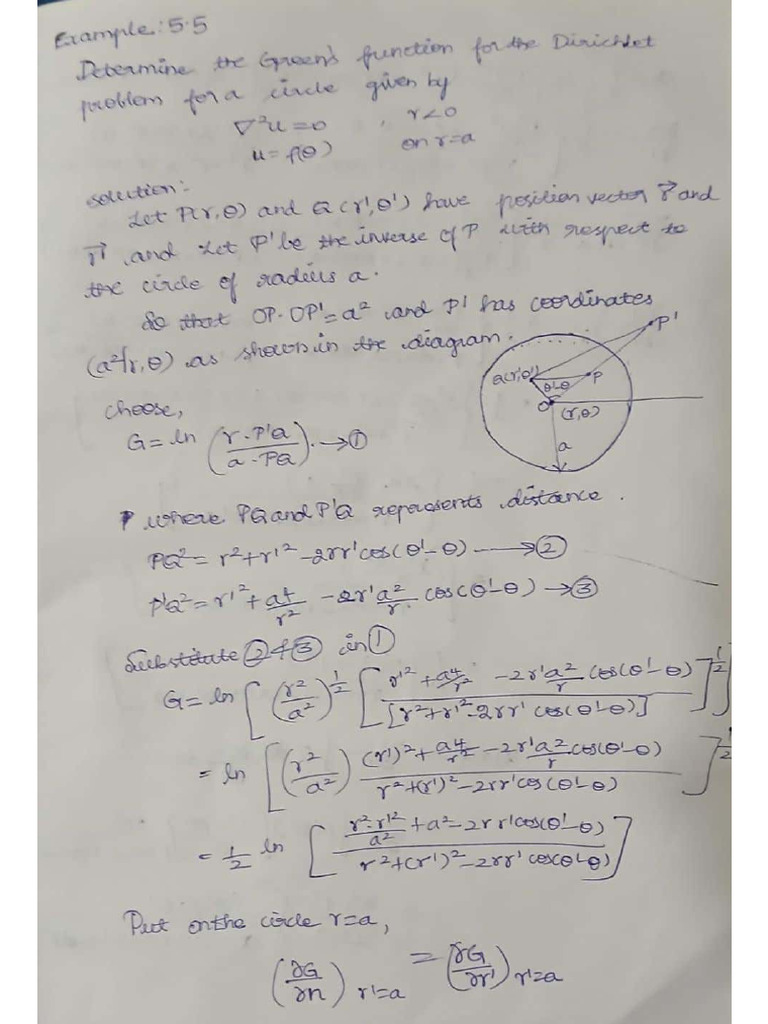 Example: 5.5
Determine the Green's function for the Dirichlet
problem for a circle given by
∇²u = 0 , r<0
u = f(θ) on r=a
solution:
Let P(r,θ) and Q(r',θ') have position vector r⃗ and
r⃗' and let P' be the inverse of P with respect to
the circle of radius a.
So that OP·OP' = a² and P' has coordinates
(a²/r, θ) as shown in the diagram.
P'
Q(r',θ')
θ'-θ
P
O
(r,θ)
a
choose,
G = ln (r·P'Q / a·PQ). → ①
where PQ and P'Q represents distance.
PQ² = r²+r'²-2rr'cos(θ'-θ) → ②
P'Q² = r'²+a⁴/r² -2r'a²/r cos(θ'-θ) → ③
Substitute ② & ③ in ①
G = ln [(r²/a²)^½ [r'²+a⁴/r² -2r'a²/r cos(θ'-θ) / [r²+r'²-2rr' cos(θ'-θ)]]^½]
= ln [(r²/a²) (r')²+a⁴/r² -2r'a²/r cos(θ'-θ) / r²+(r')²-2rr'cos(θ'-θ)]^½
= ½ ln [r²·r'²/a² +a²-2rr'cos(θ'-θ) / r²+(r')²-2rr' cos(θ'-θ)]
Put on the circle r=a,
(∂G/∂n) r'=a = (∂G/∂r') r'=a